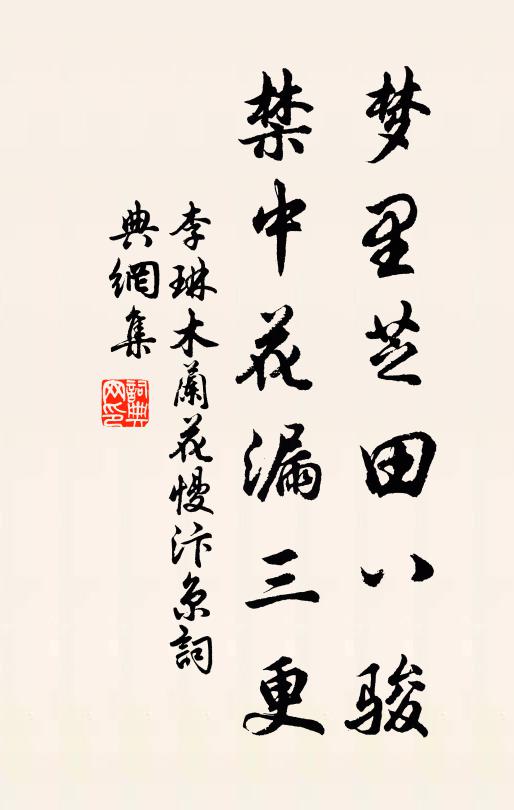 梦里芝田八骏
禁中花漏三更
李琳木蘭花慢汴京詞
典網集
詞典網印